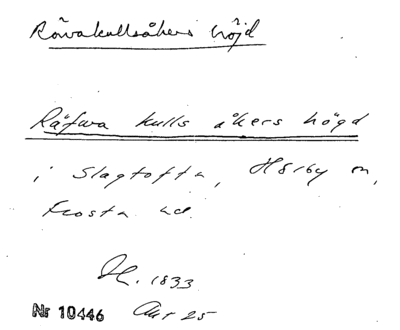 Rävakullsåkers höjd
Räfwa kulls åkers högd
i Slagtofta, Hörby sn,
Frosta hd.
1833
Nr 10446 Akt 25